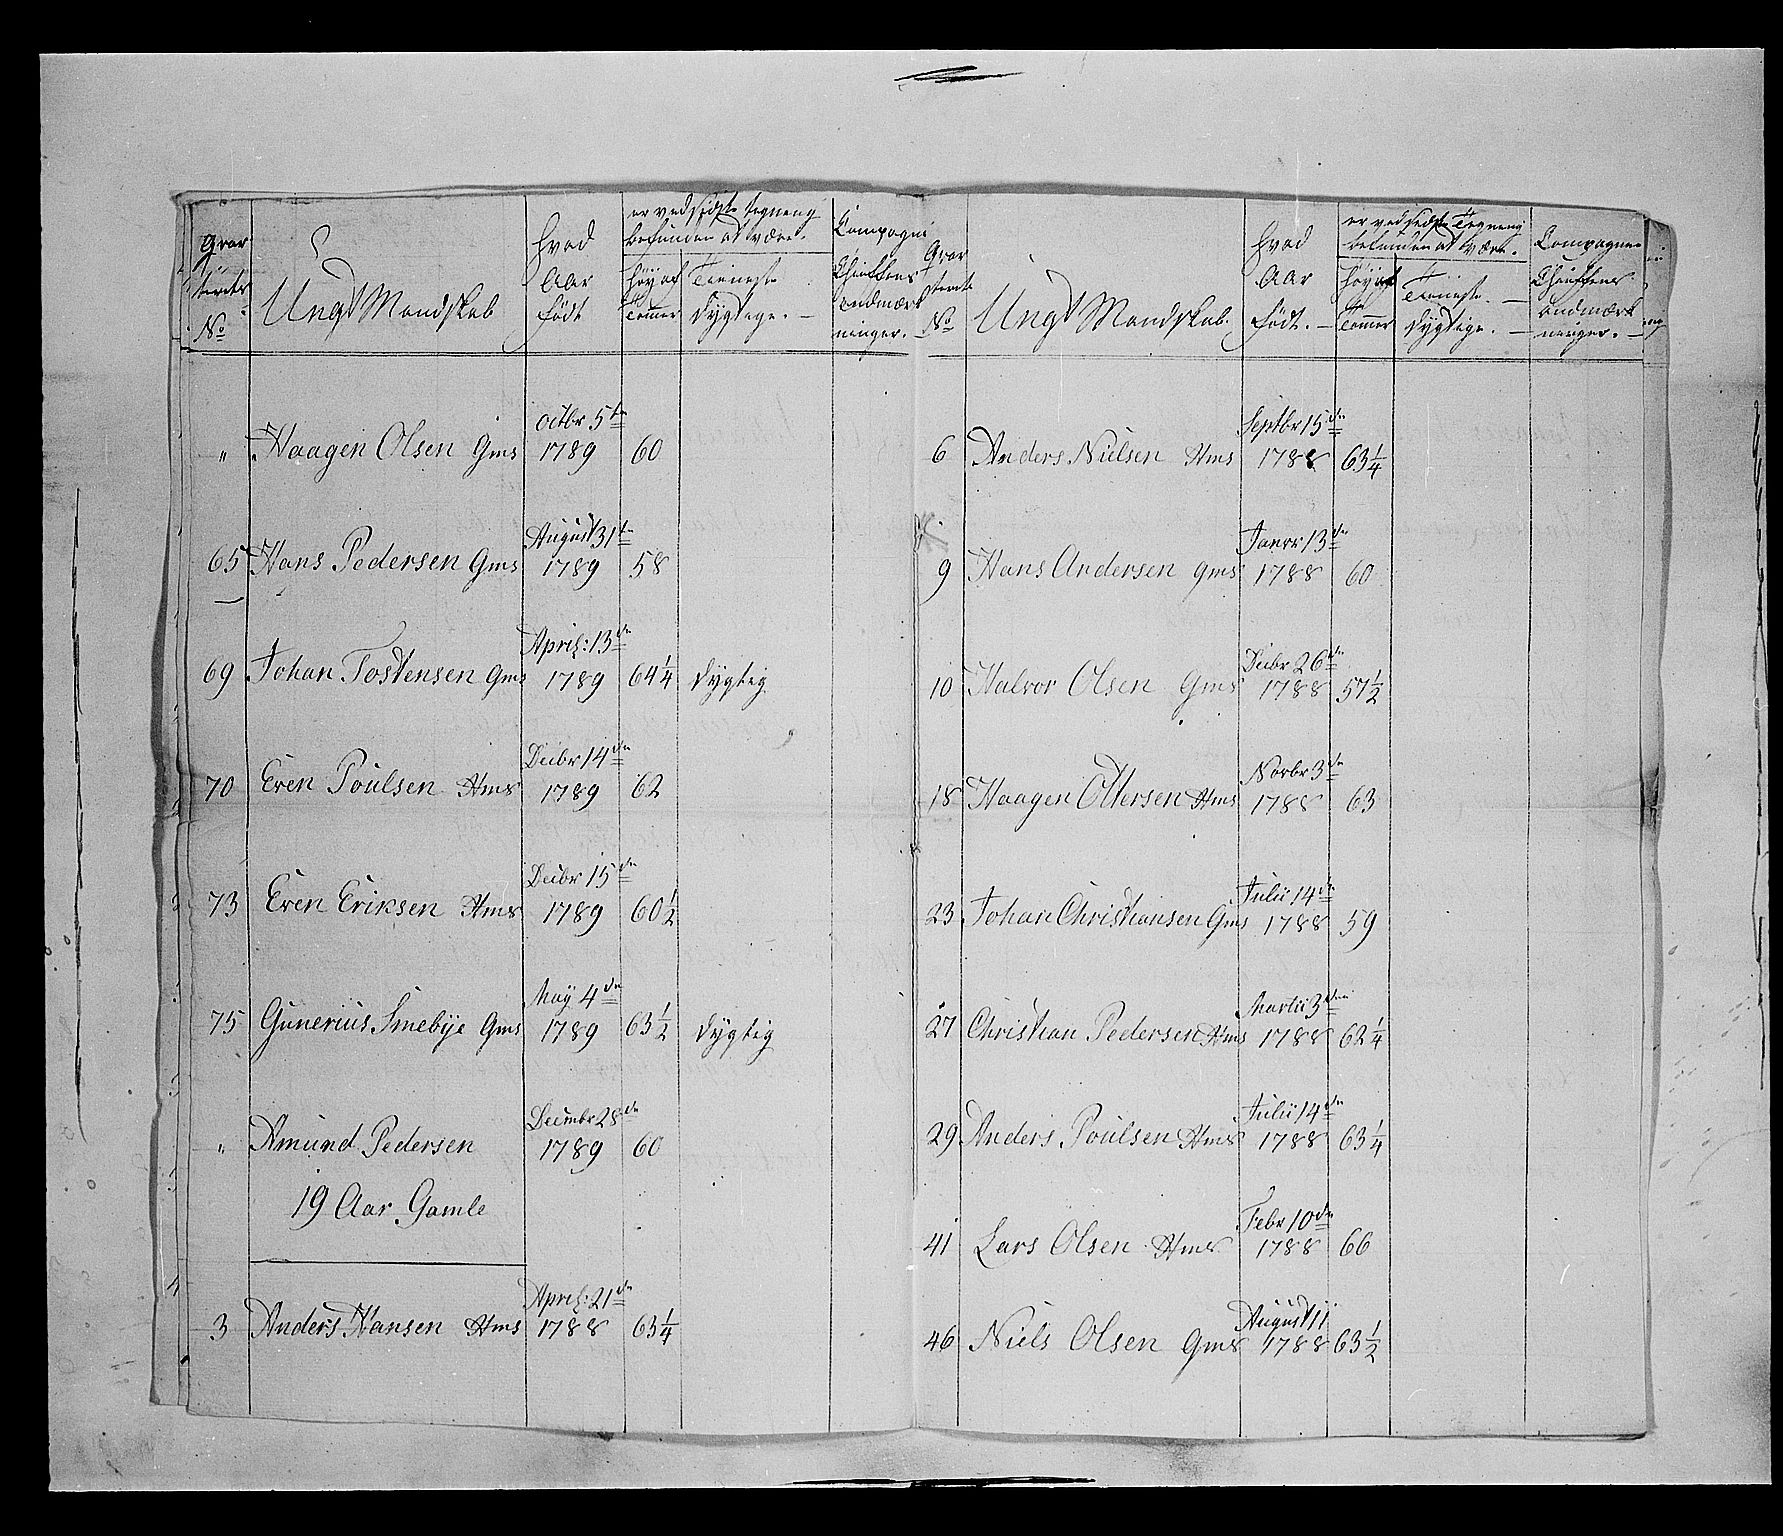 Ungt Mandskab
hvad
Aar
født
er ved sidste tegning
befunden at være.
høy af
Tommer
Tieneste
dygtige. -
Compagnie
Chæffens
andmærk
ninger. -
No
„ Haagen Olsen Gms Octbr 5te 1789 60
65 Hans Pedersen Gms August 31te 1789 58
69 Johan Tostensen Gms April: 13de 1789 64 1/4 dygtig
70 Even Poulsen Hms Decbr 14de 1789 62
73 Even Eriksen Hms Decbr 15de 1789 60 1/2
75 Gunerius Smebye Gms May 4de 1789 63 1/2 dygtig
„ Amund Pedersen Decembr 28de 1789 60
19 Aar Gamle
3 Anders Hansen Hms April: 21de 1788 63 1/4
No
Ungt Mandskab.
hvad
Aar
født. -
er ved sidste Tegning
befunden at være.
høy af
Tommer
Tieneste. -
dygtige. -
Compagnie
Chæffens
andmærk
ninger. -
6 Anders Nielsen Hms Septbr 15de 1788 63 1/4
9 Hans Andersen Gms Janvr 13de 1788 60
10 Halvor Olsen Gms Decbr 26de 1788 57 1/2
18 Haagen Ottersen Hms Novbr 3de 1788 63
23 Johan Christiansen Gms Julii 14de 1788 59
27 Christian Pedersen Hms Martii 3de 1788 62 1/4
29 Anders Poulsen Hms Julii 14de 1788 63 1/4
41 Lars Olsen Hms Febr 10de 1788 66
46 Niels Olsen Gms August 11 1788 63 1/2